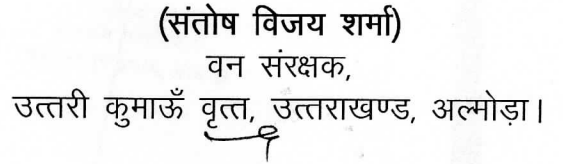 (संतोष विजय शर्मा)
वन संरक्षक,
उत्तरी कुमाऊँ वृत्त, उत्तराखण्ड, अल्मोड़ा।